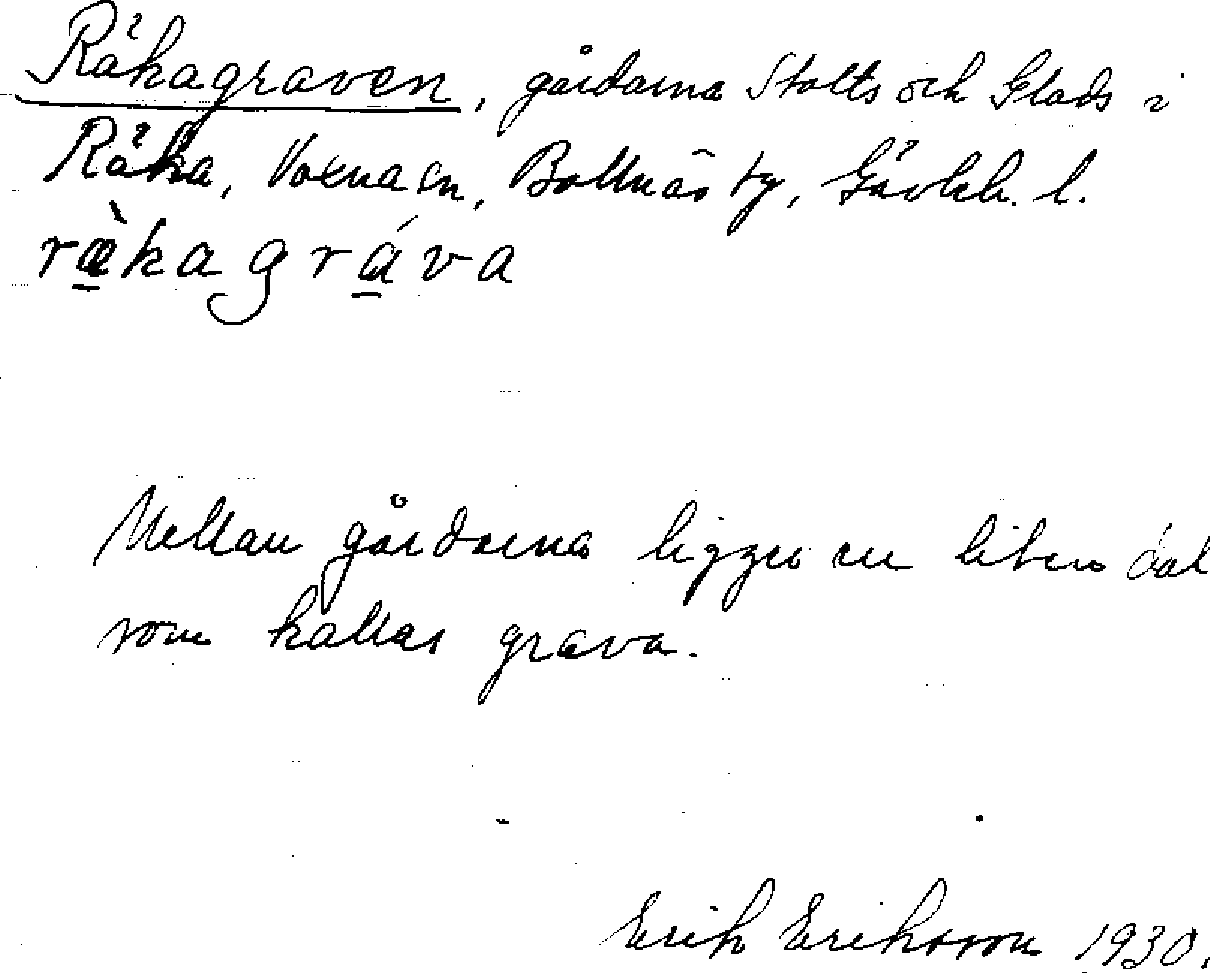 Råkagraven, gårdarna Stolts och Glads i
Råka, Voxna sn, Bollnäs tg, Gävleb. l.
rækagráva
Mellan gårdarna ligger en liten dal
som kallas grava.
Erik Eriksson 1930.